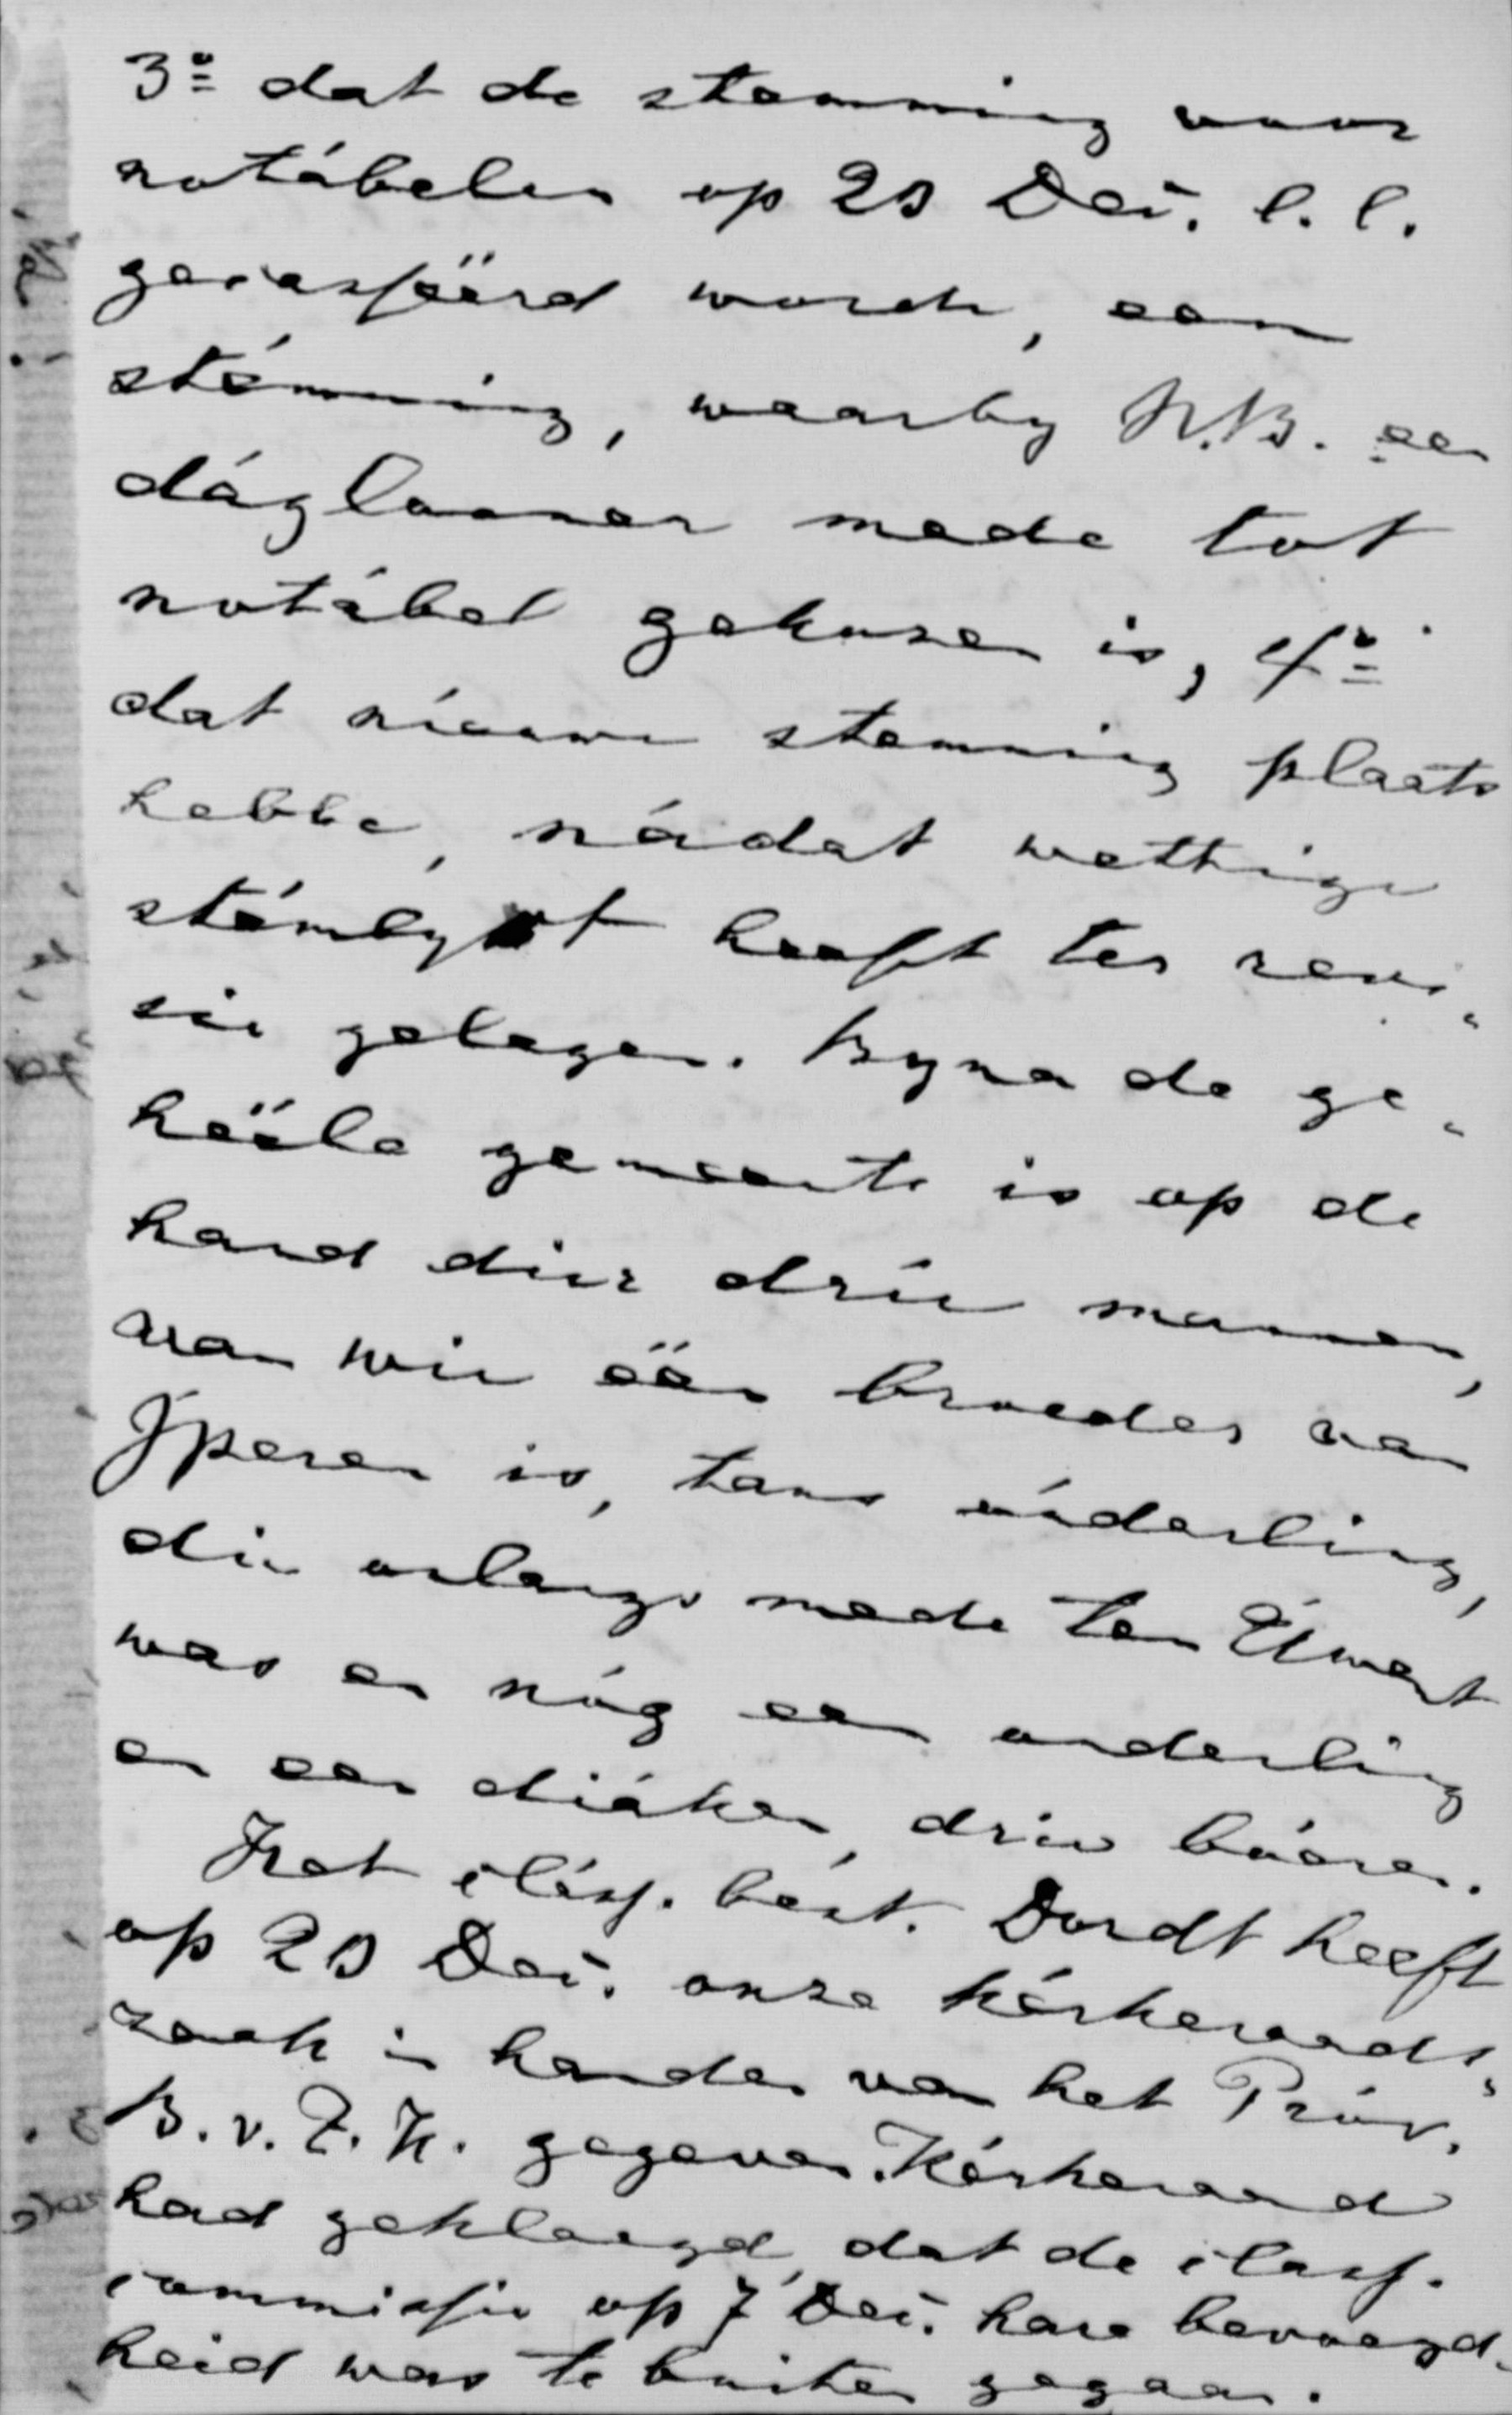 3º dat de stemming voor
notábelen op 20 Dec. l.l.
gecasseerd worde, een
stémming, waarby N.B. een
dáglooner mede tot
notábel gekozen is, 4º
dat nieuwe stemming plaats
hebbe, nádat wettige
stémlyst heeft ter revi-
sie gelegen. Byna de ge-
heele gemeente is op de
hand dier drie mannen,
van wie één broeder van
Iperen is, tans óúderling,
die onlangs mede ten
was en nóg een ouderling
en een diáken, drie bóeren.
Het cláss. bést. Dordt heeft
op 20 Dec. onze kérkeraads-
zaak in handen van het Próv.
B. v. Z. H. gegeven. Kérkeraad
had geklaagd, dat de class.
commissie op 7 Dec. hare bevoegd-
heid was te buiten gegaan.